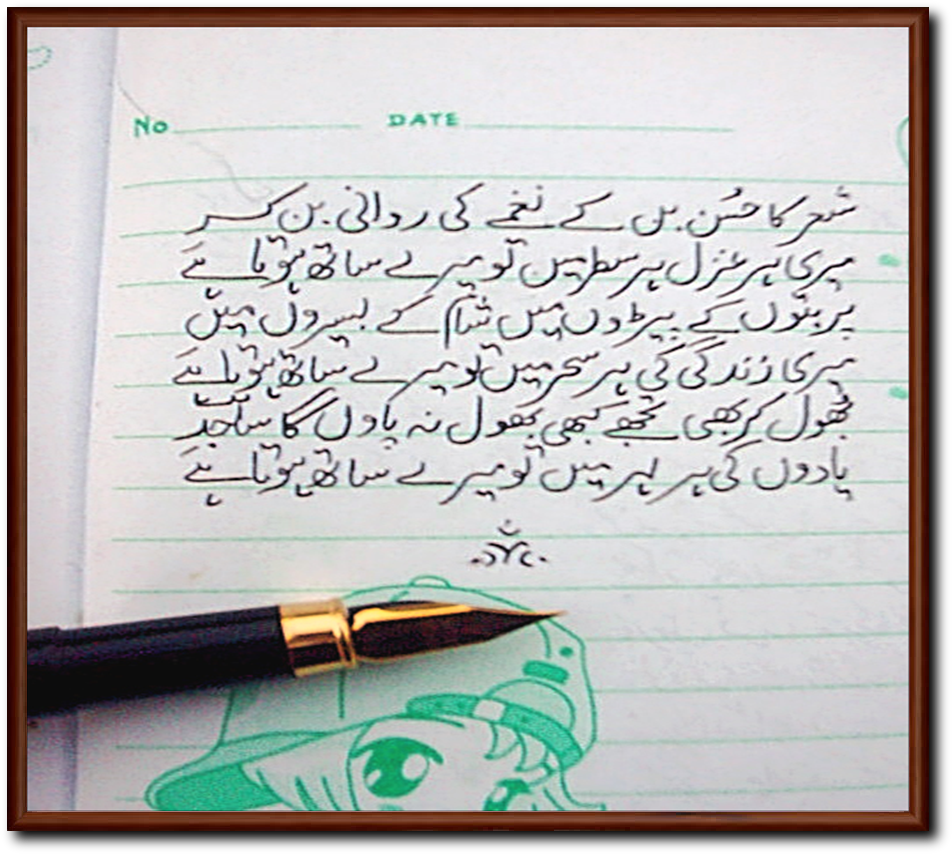 No DATE
شعر کا حُسن بن کے نغمے کی روانی بن کر
میری ہر غزل ہر سطر میں تو میرے ساتھ ہوتا ہے
پربتوں کے پیڑوں میں شام کے بسیروں میں
میری زندگی کی ہر سحر میں تو میرے ساتھ ہوتا ہے
بھول کر بھی تجھے کبھی بھول نہ پاوں گا ساجد
یادوں کی ہر لہر میں تو میرے ساتھ ہوتا ہے